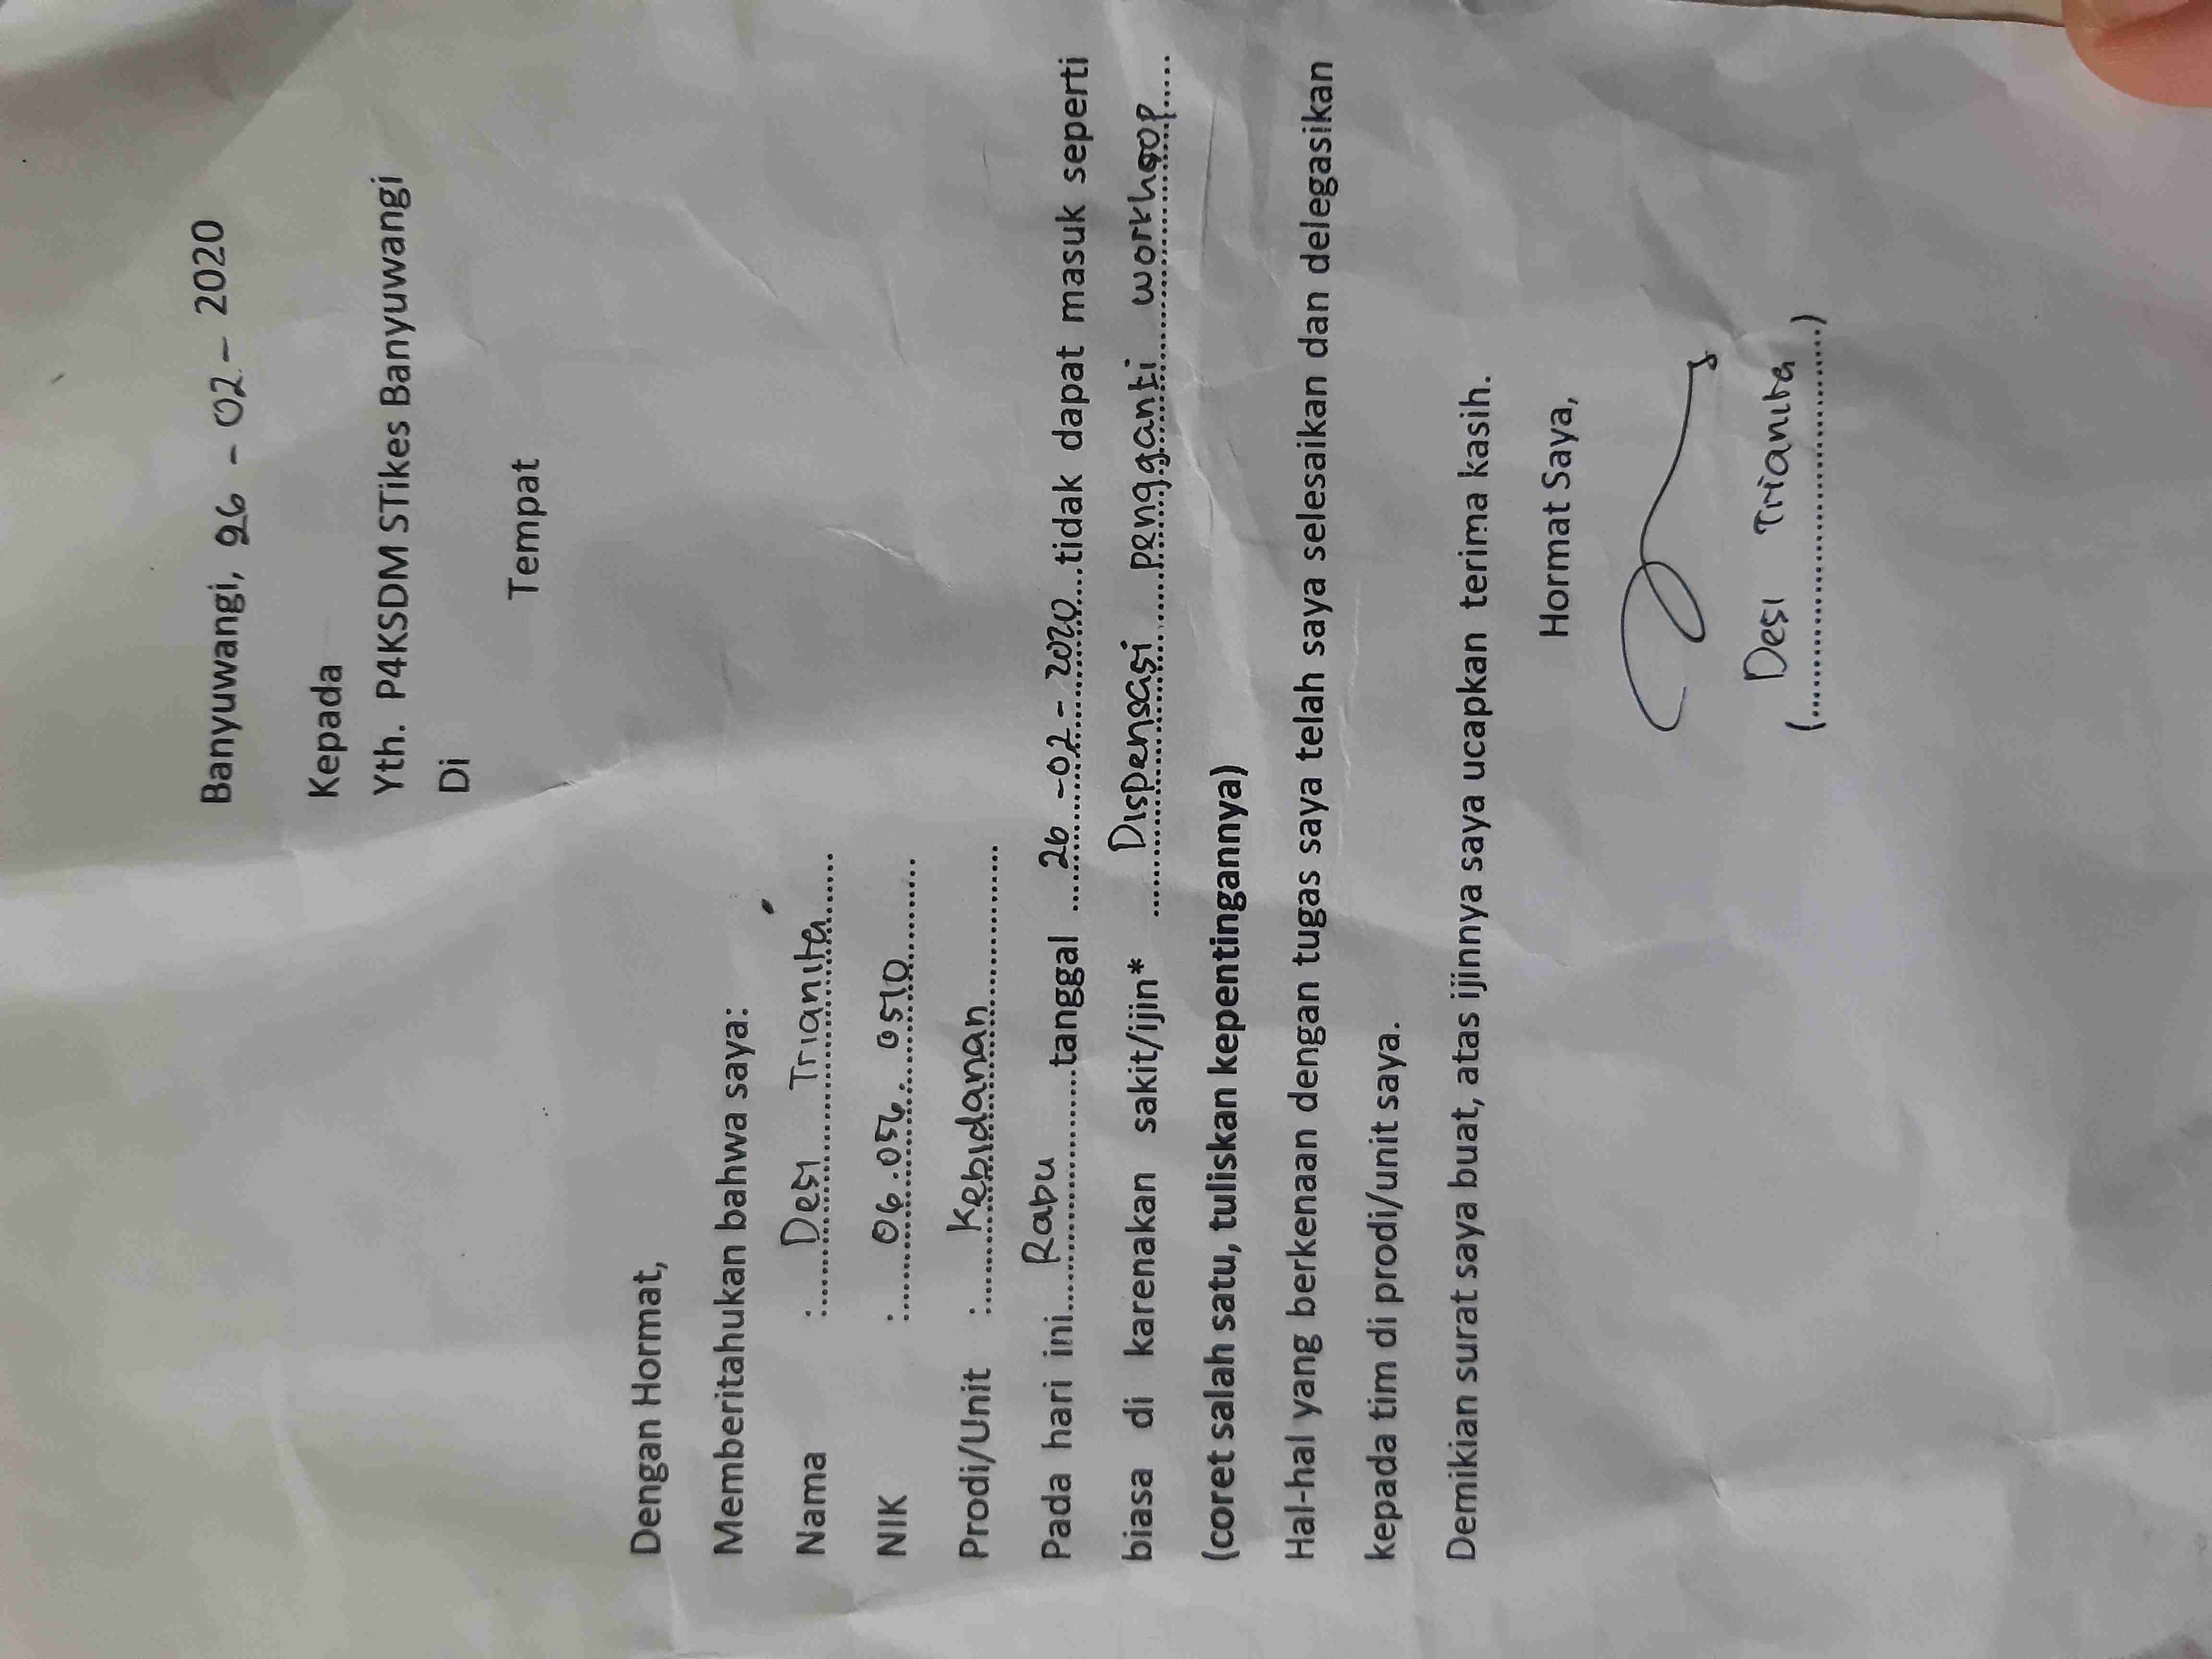 Banyuwangi, 26 - 02 - 2020
Kepada
Yth. P4KSDM STikes Banyuwangi
Di
Tempat
Dengan Hormat,
Memberitahukan bahwa saya:
Nama :..... Desi Trianita .....
NIK :..... 06.056. 0510 .....
Prodi/Unit :..... Kebidanan .....
Pada hari ini..... Rabu .....tanggal ..... 26 -02- 2020 .....tidak dapat masuk seperti
biasa di karenakan sakit/ijin* ..... Dispensasi pengganti workhsop .....
(coret salah satu, tuliskan kepentingannya)
Hal-hal yang berkenaan dengan tugas saya telah saya selesaikan dan delegasikan
kepada tim di prodi/unit saya.
Demikian surat saya buat, atas ijinnya saya ucapkan terima kasih.
Hormat Saya,
Desi Trianita
(..............................)